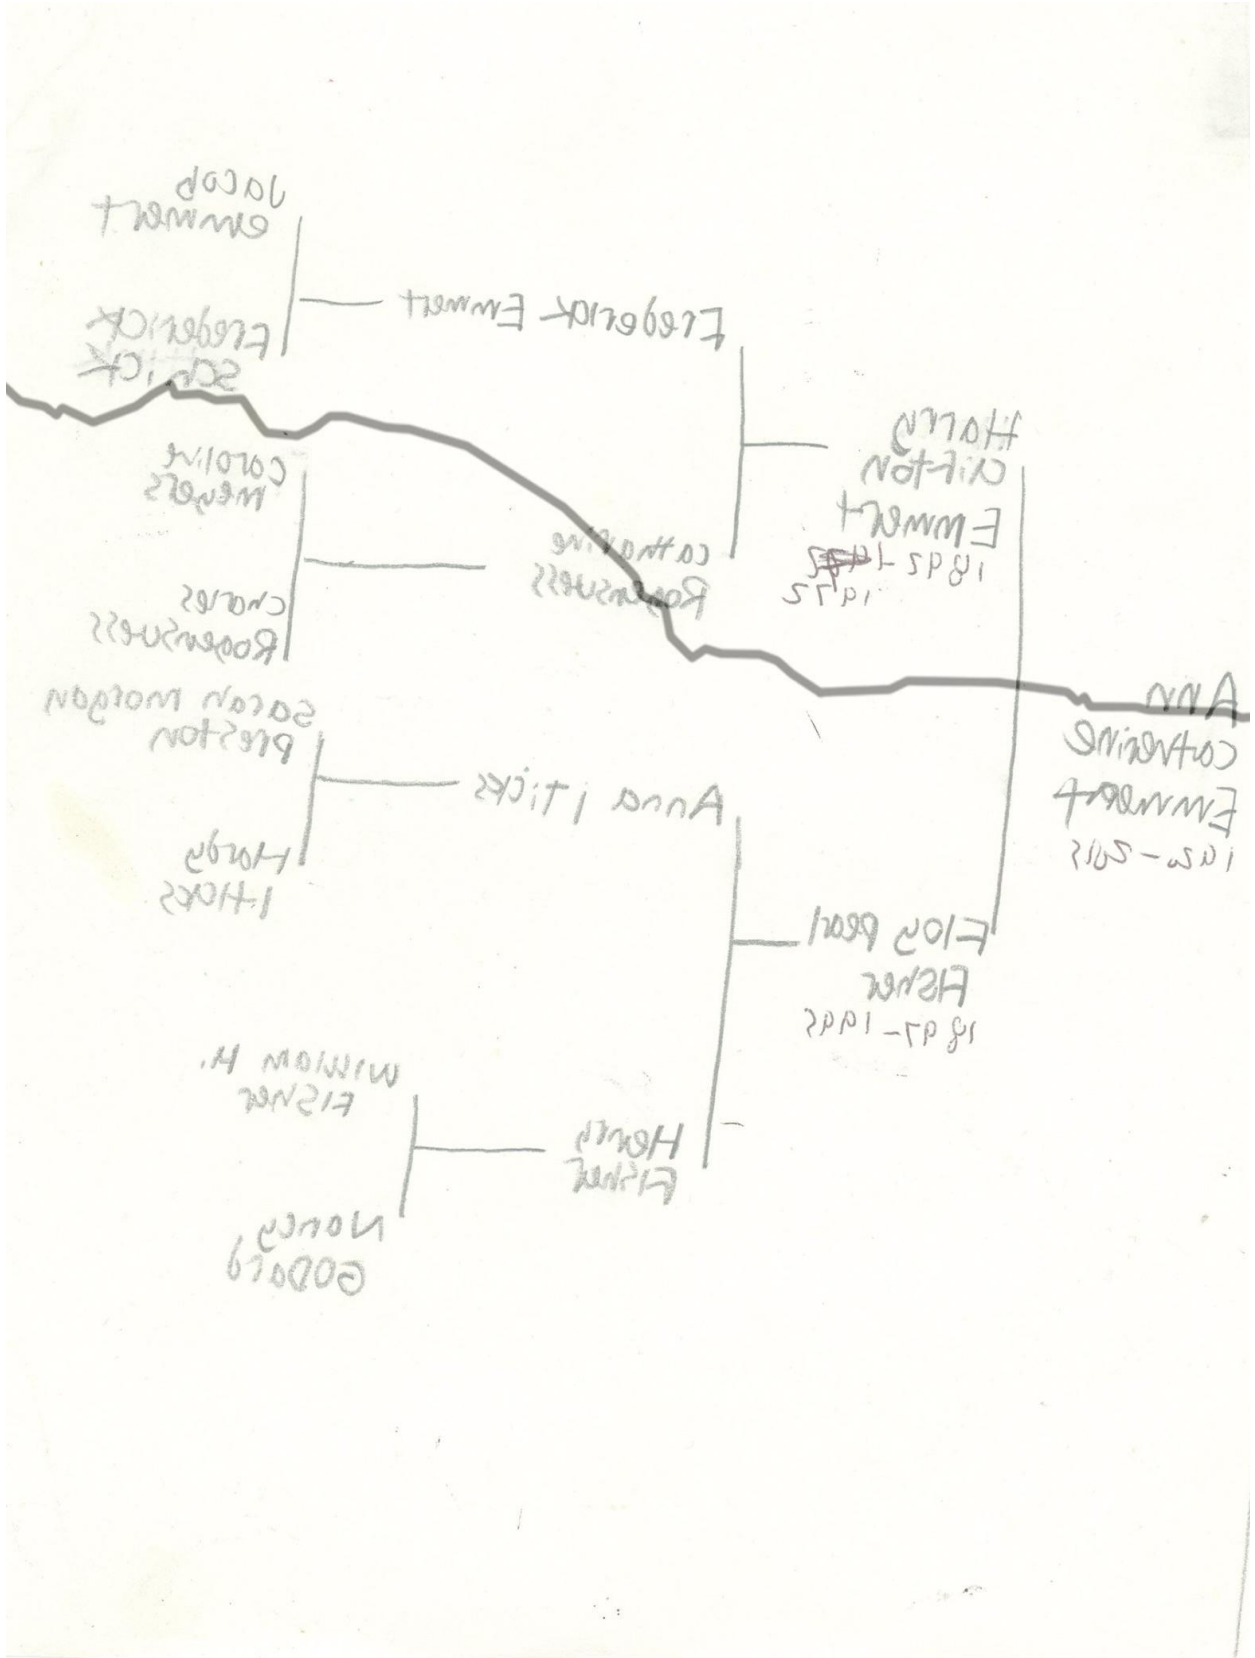 Ann
Catherine
Emmert
192-2015
Harry
Clifton
Emmert
1892-1972
1972
Floy pearl
Fisher
1897-1995
Frederick Emmert
Catharine
Rogensuess
Anna Hicks
Henry
Fisher
Jacob
emmert
Frederick
Schick
Caroline
meyers
Charles
Rogensuess
Sarah morgan
Preston
Hardy
Hicks
William H.
Fisher
Nancy
Godard